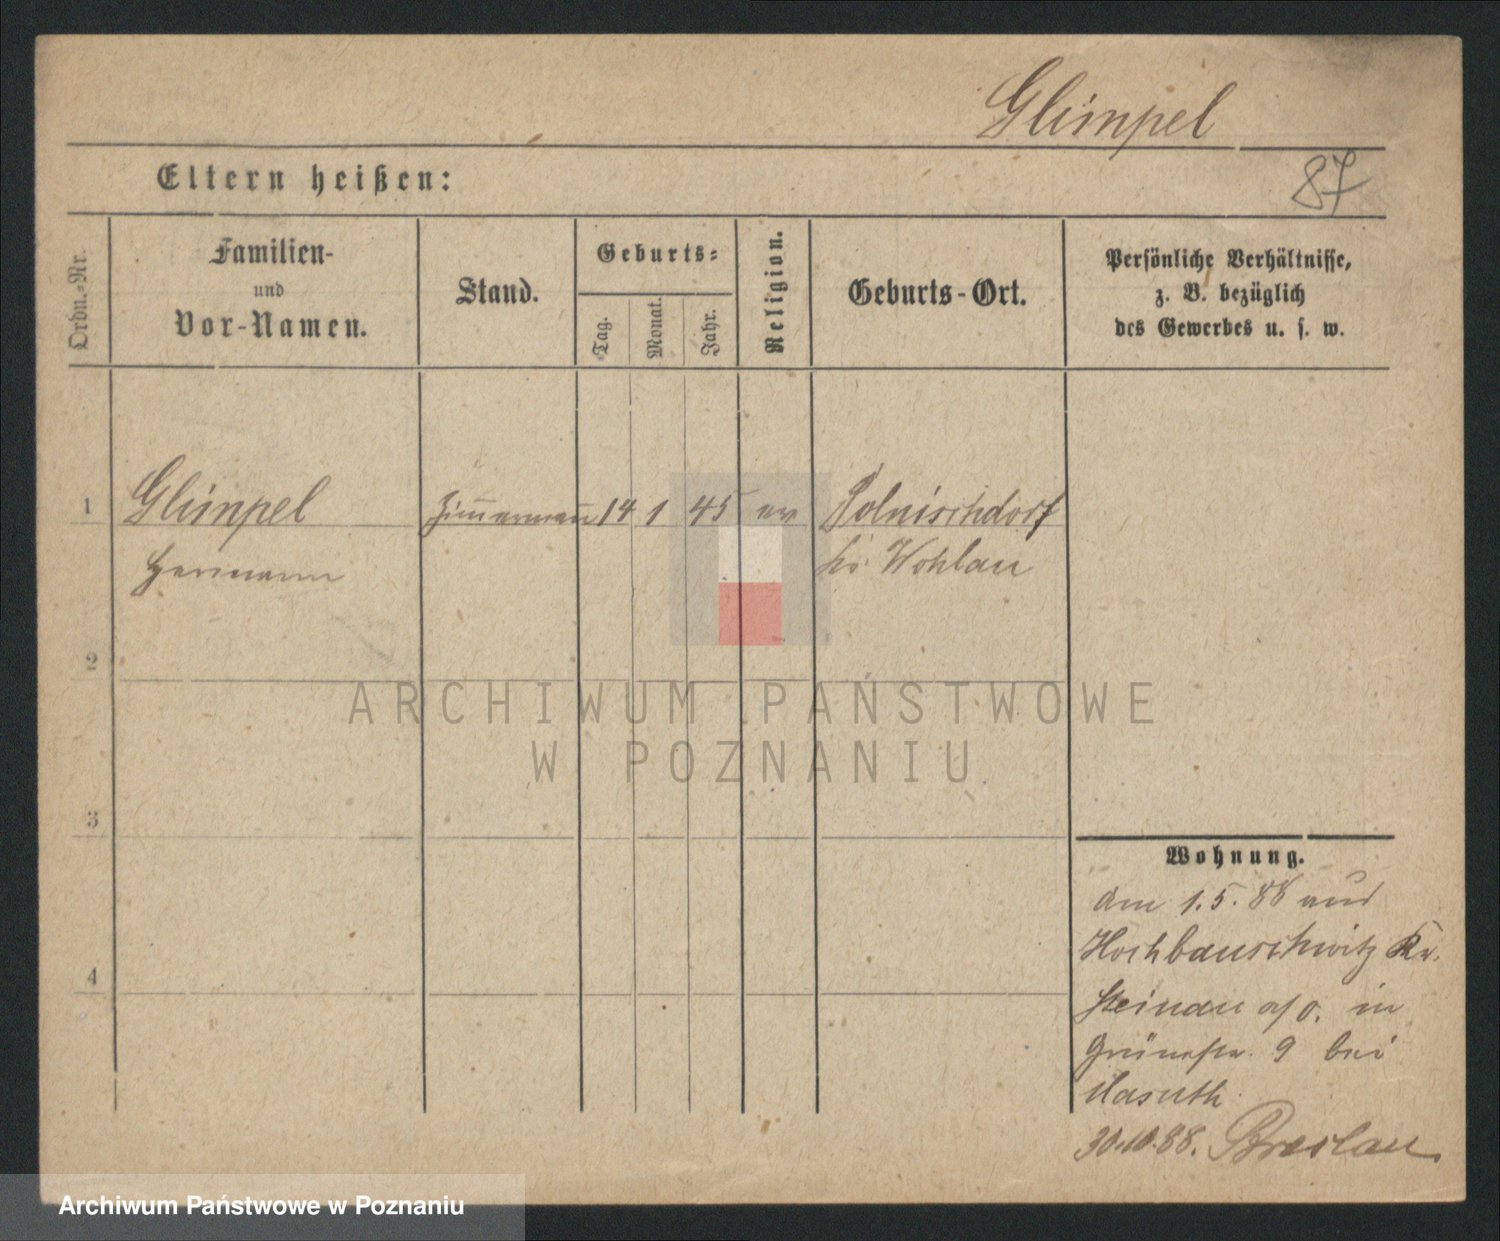 Glimpel
Eltern heißen:
87
Ordn.-Nr.
Familien-
und
Vor-Namen.
Stand.
Geburts-
Tag.
Monat.
Jahr.
Religion.
Geburts-Ort.
Persönliche Verhältnisse,
z. B. bezüglich
des Gewerbes u. s. w.
1 Glimpel Zimmermann 14 1 45 ev Polnischdorf
Hermann Kr. Wohlau
2
ARCHIWUM PAŃSTWOWE
W POZNANIU
3
Wohnung.
am 1.5.88 aus
Hochbauschwitz Kr.
Steinau a/O. in
Grünestr. 9 bei
4
30.10.88. Breslau.
Archiwum Państwowe w Poznaniu